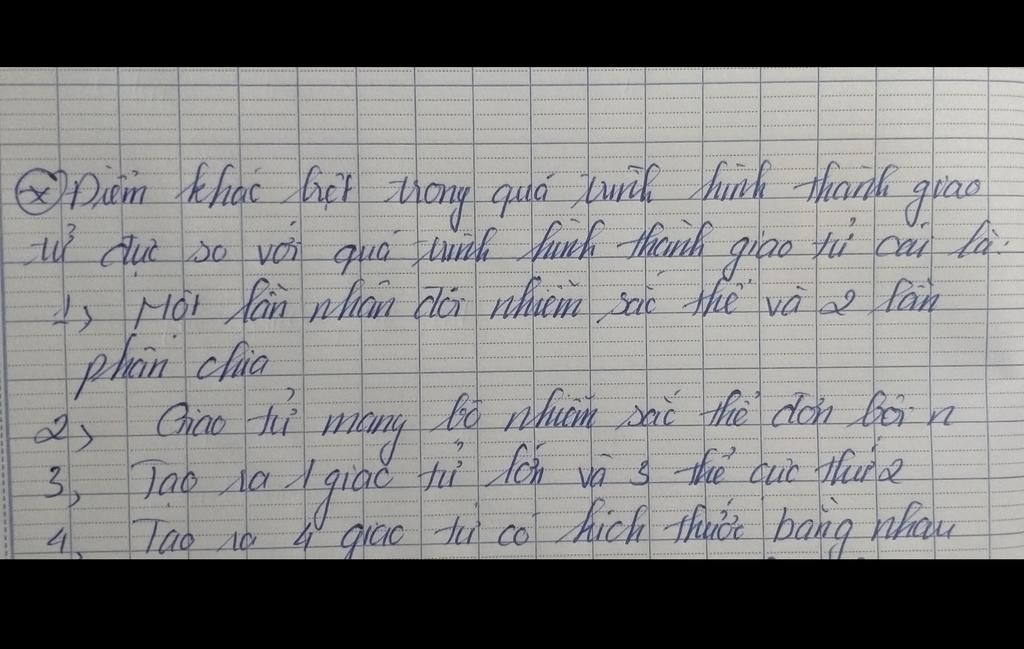 (*) Điểm khác biệt trong quá trình hình thành giao
tử đực so với quá trình hình thành giao tử cái là:
1, Một lần nhân đôi nhiễm sắc thể và 2 lần
phân chia
2, Giao tử mang bộ nhiễm sắc thể đơn bội n
3, Tạo ra 1 giao tử lớn và 3 thể cực thứ 2
4, Tạo ra 4 giao tử có kích thước bằng nhau